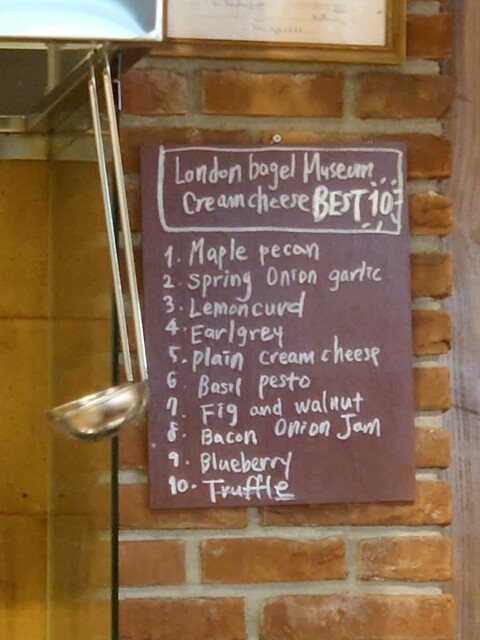 London bagel Museum
Cream cheese BEST 10
1. Maple pecan
2. Spring Onion garlic
3. Lemoncurd
4. Earlgrey
5. Plain cream cheese
6. Basil pesto
7. Fig and walnut
8. Bacon Onion Jam
9. Blueberry
10. Truffle